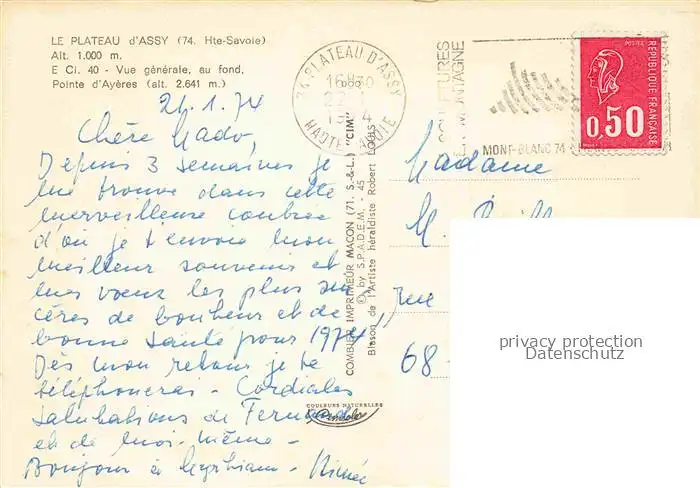 LE PLATEAU d'ASSY (74. Hte-Savoie)
Alt. 1.000 m.
E Ci. 40 - Vue générale, au fond,
Pointe d'Ayères (alt. 2.641 m.)
74 PLATEAU D'ASSY
16H30
HAUTE SAVOIE
SCULPTURES
EN MONTAGNE
MONT-BLANC 74
POSTES
RÉPUBLIQUE FRANÇAISE
0,50
21.1.74
Chère Mado,
Depuis 3 semaines je
me trouve dans cette
merveilleuse contrée
d'où je t'envoie mon
meilleur souvenir et
mes vœux les plus sin
cères de bonheur et de
bonne santé pour 1974,
Dès mon retour je te
téléphonerai - Cordiales
salutations de Fernand
et de moi-même -
Bonjour à - Aimée
COMBIER IMPRIMEUR MACON (71. S.-&-L.) "CIM"
© by S.P.A.D.E.M. - 45
Blason de l'Artiste héraldiste Robert LOUIS
COULEURS NATURELLES
Madame
M.
rue
68 -
privacy protection
Datenschutz